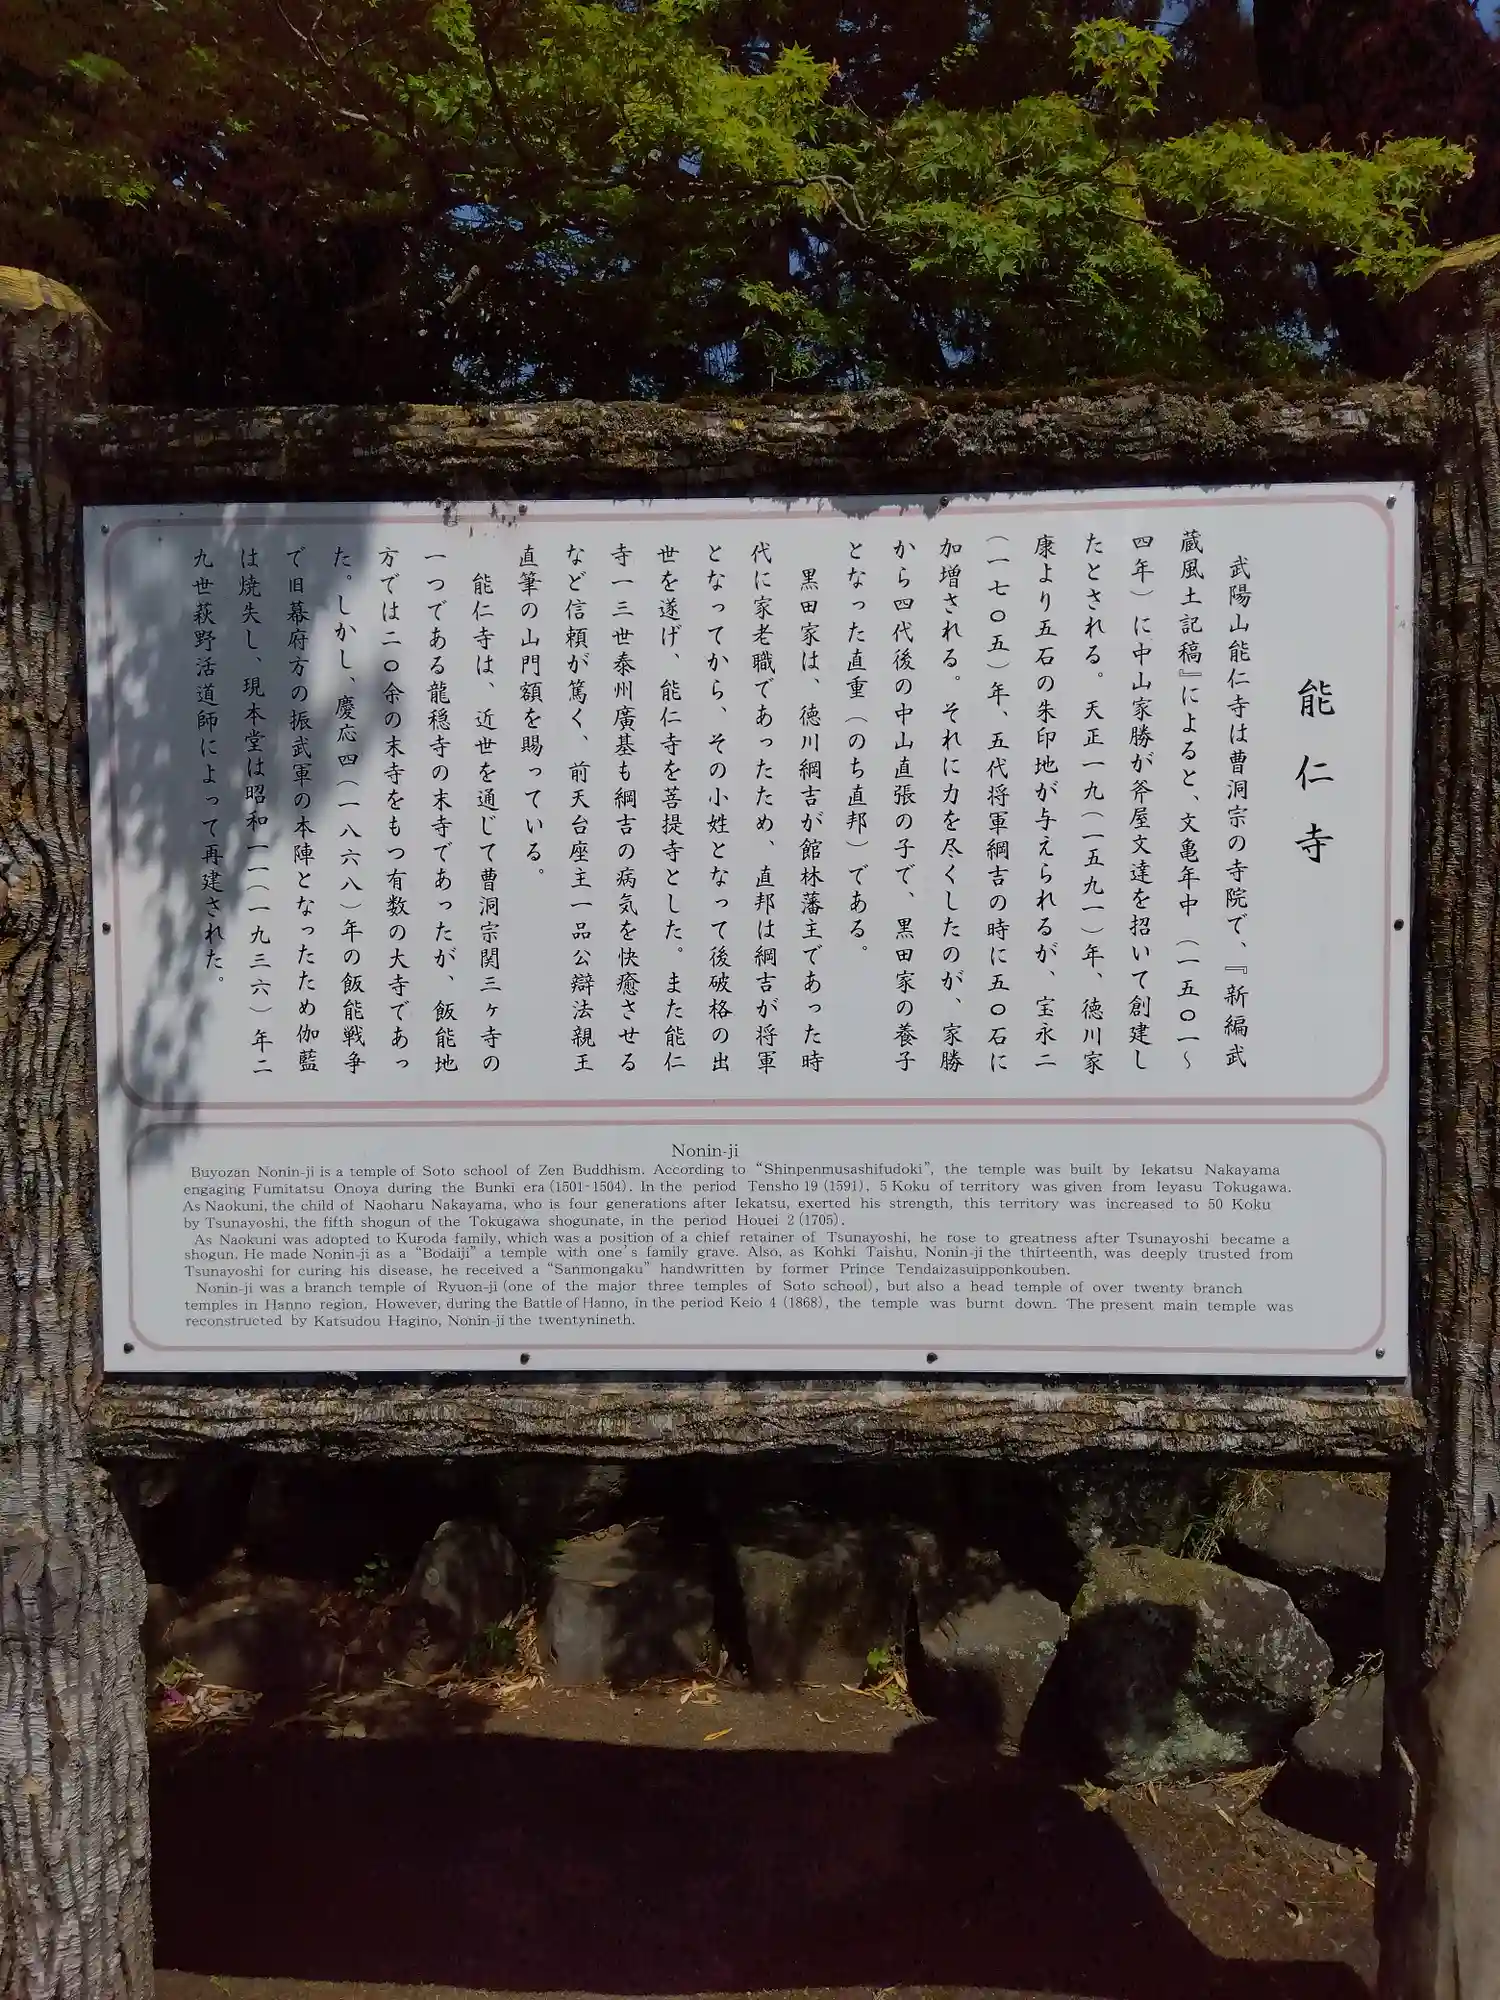 能仁寺
武陽山能仁寺は曹洞宗の寺院で、『新編武
蔵風土記稿』によると、文亀年中（一五〇一〜
四年）に中山家勝が斧屋文達を招いて創建し
たとされる。天正一九（一五九一）年、徳川家
康より五石の朱印地が与えられるが、宝永二
（一七〇五）年、五代将軍綱吉の時に五〇石に
加増される。それに力を尽くしたのが、家勝
から四代後の中山直張の子で、黒田家の養子
となった直重（のち直邦）である。
黒田家は、徳川綱吉が館林藩主であった時
代に家老職であったため、直邦は綱吉が将軍
となってから、その小姓となって後破格の出
世を遂げ、能仁寺を菩提寺とした。また能仁
寺一三世泰州廣基も綱吉の病気を快癒させる
など信頼が篤く、前天台座主一品公辯法親王
直筆の山門額を賜っている。
能仁寺は、近世を通じて曹洞宗関三ヶ寺の
一つである龍穏寺の末寺であったが、飯能地
方では二〇余の末寺をもつ有数の大寺であっ
た。しかし、慶応四（一八六八）年の飯能戦争
で旧幕府方の振武軍の本陣となったため伽藍
は焼失し、現本堂は昭和一一（一九三六）年二
九世萩野活道師によって再建された。
Nonin-ji
Buyozan Nonin-ji is a temple of Soto school of Zen Buddhism. According to “Shinpenmusashifudoki”, the temple was built by Iekatsu Nakayama
engaging Fumitatsu Onoya during the Bunki era (1501-1504). In the period Tensho 19 (1591), 5 Koku of territory was given from Ieyasu Tokugawa.
As Naokuni, the child of Naoharu Nakayama, who is four generations after Iekatsu, exerted his strength, this territory was increased to 50 Koku
by Tsunayoshi, the fifth shogun of the Tokugawa shogunate, in the period Houei 2 (1705).
As Naokuni was adopted to Kuroda family, which was a position of a chief retainer of Tsunayoshi, he rose to greatness after Tsunayoshi became a
shogun. He made Nonin-ji as a “Bodaiji” a temple with one's family grave. Also, as Kohki Taishu, Nonin-ji the thirteenth, was deeply trusted from
Tsunayoshi for curing his disease, he received a “Sanmongaku” handwritten by former Prince Tendaizasuipponkouben.
Nonin-ji was a branch temple of Ryuon-ji (one of the major three temples of Soto school), but also a head temple of over twenty branch
temples in Hanno region. However, during the Battle of Hanno, in the period Keio 4 (1868), the temple was burnt down. The present main temple was
reconstructed by Katsudou Hagino, Nonin-ji the twentynineth.